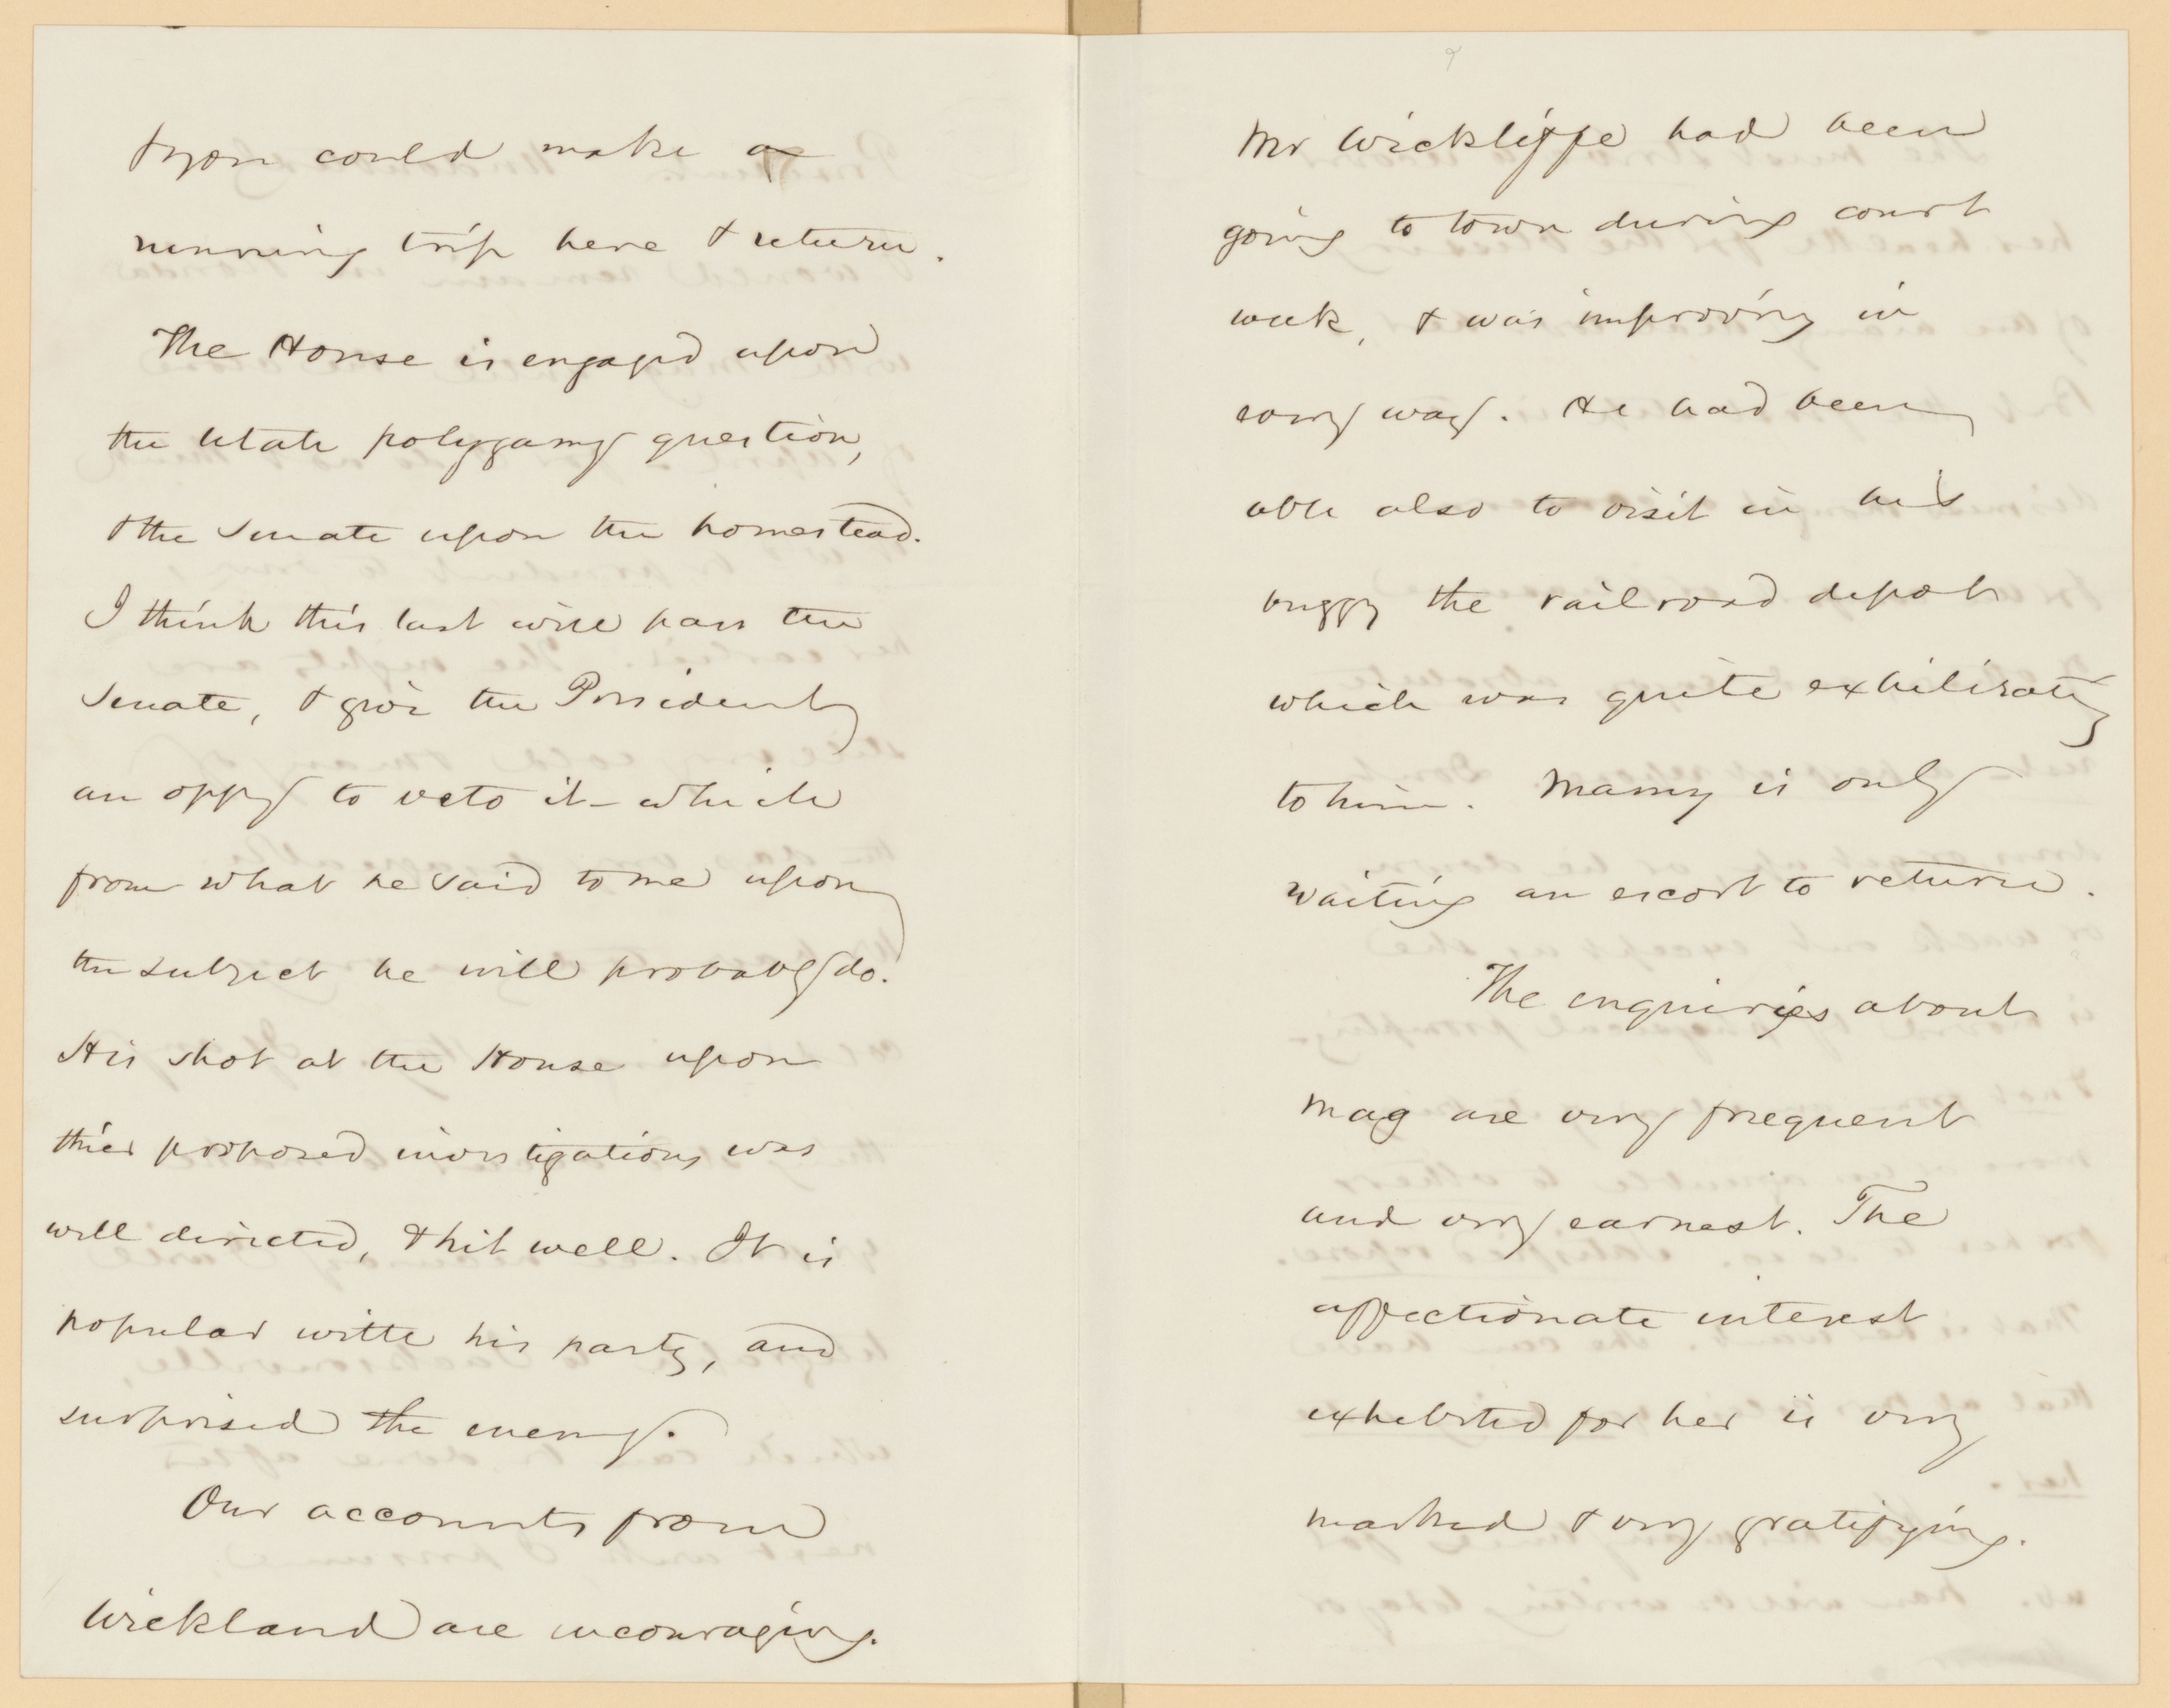 & you could make a
running trip here & return.
The House is engaged upon
the Utah polygamy question,
& the Senate upon the homestead.
I think this last will pass the
Senate, & give the President
an oppy to veto it - which
from what he said to me upon
the subject he will probably do.
His shot at the House upon
thier proposed investigations was
well directed, & hit well. It is
popular with his party, and
surprised the enemy.
Our accounts from
Wickland are encouraging.
Mr Wickliffe had been
going to town during court
week, & was improving in
every way. He had been
able also to visit in his
buggy the railroad depot
which was quite exhilirating
to him. Mamy is only
waiting an escort to return.
The enquiries about
Mag are very frequent
and very earnest. The
affectionate interest
exhebited for her is very
marked & very gratifying.